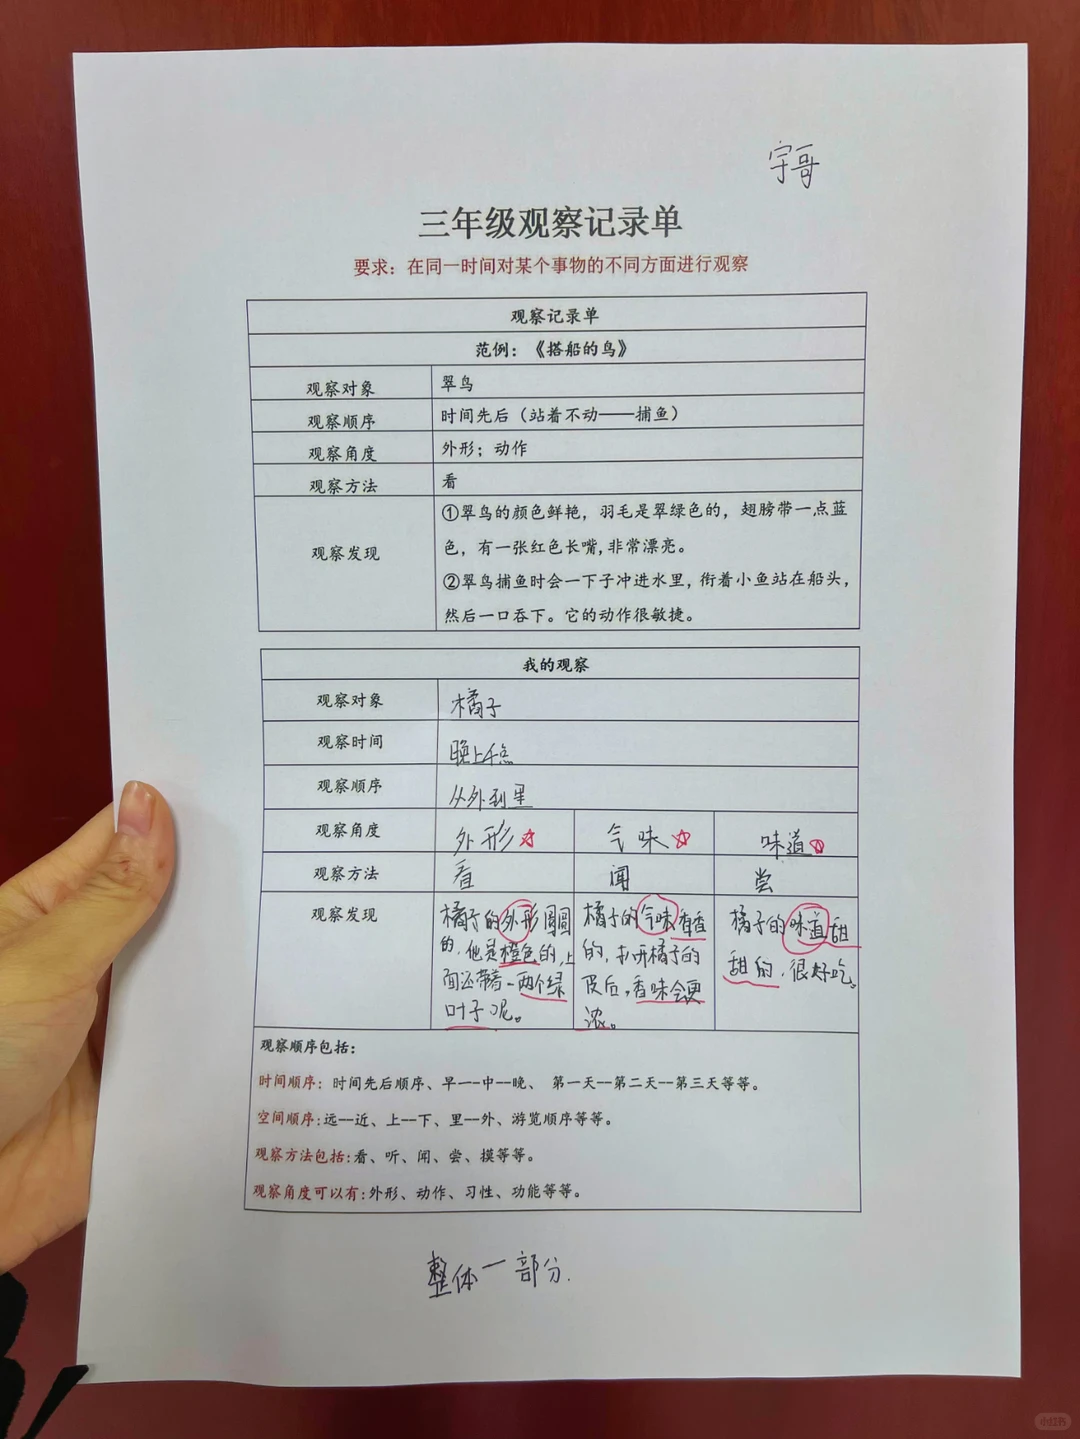 宇哥
三年级观察记录单
要求：在同一时间对某个事物的不同方面进行观察
观察记录单
范例：《搭船的鸟》
观察对象 翠鸟
观察顺序 时间先后（站着不动——捕鱼）
观察角度 外形；动作
观察方法 看
观察发现
①翠鸟的颜色鲜艳，羽毛是翠绿色的，翅膀带一点蓝
色，有一张红色长嘴,非常漂亮。
②翠鸟捕鱼时会一下子冲进水里，衔着小鱼站在船头，
然后一口吞下。它的动作很敏捷。
我的观察
观察对象 橘子
观察时间 晚上
观察顺序 从外到里
观察角度 外形 气味 味道
观察方法 看 闻 尝
观察发现
橘子的外形圆圆
的，他是橙色的，上
面还带着一两个绿
叶子呢。
橘子的气味有香
的，扒开橘子的
皮后，香味会更
浓。
橘子的味道甜
甜的，很好吃。
观察顺序包括：
时间顺序：时间先后顺序、早--中--晚、 第一天--第二天--第三天等等。
空间顺序:远--近、上--下、里--外、游览顺序等等。
观察方法包括:看、听、闻、尝、摸等等。
观察角度可以有:外形、动作、习性、功能等等。
整体一部分.
小红书